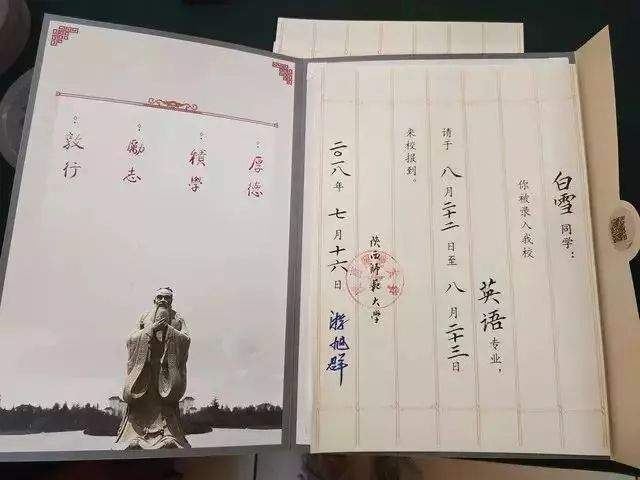 厚德
積學
勵志
敦行
白雪同学：
你被录入我校
英语专业，
请于八月二十二日至八月二十三日
来校报到。
陕西師範大学
二〇一八年七月十六日
游旭群